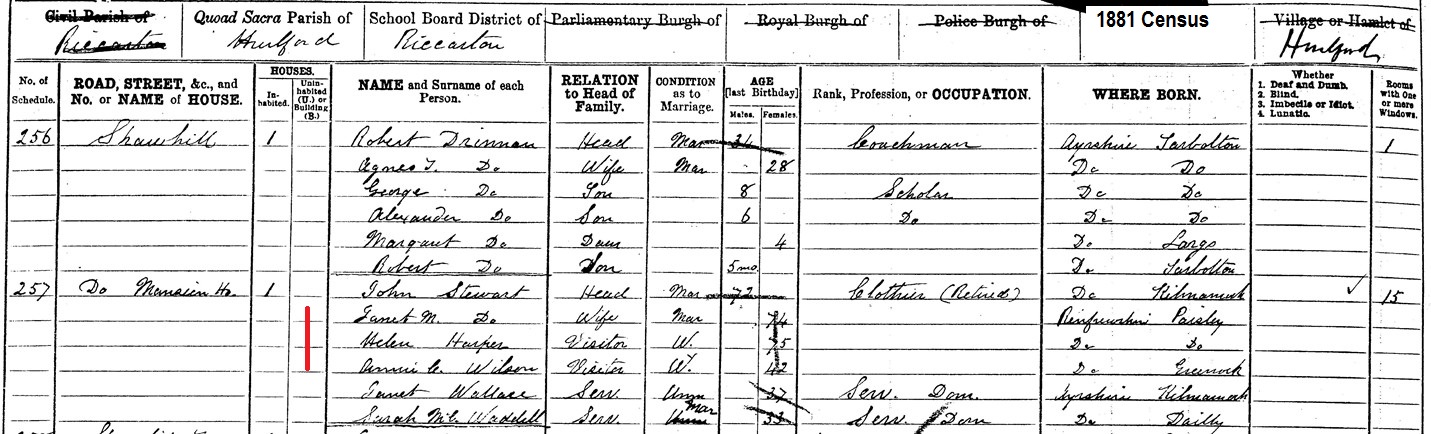 Civil Parish of Quoad Sacra Parish of School Board District of Parliamentary Burgh of Royal Burgh of Police Burgh of 1881 Census Village or Hamlet of
Riccarton Hurlford Riccarton Hurlford
No. of Schedule. ROAD, STREET, &c., and No. or NAME of HOUSE. HOUSES. In-habited. Unin-habited (U.) or Building (B.) NAME and Surname of each Person. RELATION to Head of Family. CONDITION as to Marriage. AGE [last Birthday] Males. Females. Rank, Profession, or OCCUPATION. WHERE BORN. Whether 1. Deaf and Dumb. 2. Blind. 3. Imbecile or Idiot. 4. Lunatic. Rooms with One or more Windows.
256 Shawhill 1 Robert Drinnan Head Mar Coachman Ayrshire Tarbolton 1
Agnes T. Do Wife Mar 28 Do Do
George Do Son 8 Scholar Do Do
Alexander Do Son 6 Do Do Do
Margaret Do Daur 4 Do Largs
Robert Do Son 5mo Do Tarbolton
257 Do Mansion Ho. 1 John Stewart Head Mar 72 Clothier (Retired) Do Kilmarnock 15
Janet M. Do Wife Mar 74 Renfrewshire Paisley
Helen Harper Visitor W. 75 Do Do
Annie C. Wilson Visitor W. 42 Do Greenock
Janet Wallace Serv. Unm 37 Serv. Dom. Ayrshire Kilmarnock
Sarah McC. Waddell Serv. Mar 33 Serv. Dom Do Dailly